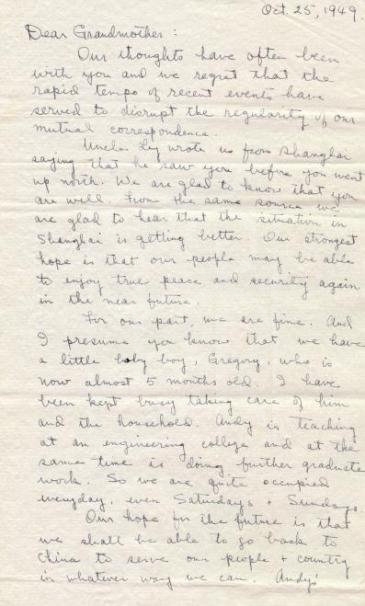 Oct. 25, 1949.
Dear Grandmother:
Our thoughts have often been
with you and we regret that the
rapid tempo of recent events have
served to disrupt the regularity of our
mutual correspondence.
Uncle Ly wrote us from Shanghai
saying that he saw you before you went
up north. We are glad to know that you
are well. From the same source we
are glad to hear that the situation in
Shanghai is getting better. Our strongest
hope is that our people may be able
to enjoy true peace and security again
in the near future.
For our part, we are fine. And
I presume you know that we have
a little baby boy, Gregory, who is
now almost 5 months old. I have
been kept busy taking care of him
and the household. Andy is teaching
at an engineering college and at the
same time is doing further graduate
work. So we are quite occupied
everyday, even Saturdays + Sundays.
Our hope for the future is that
we shall be able to go back to
China to serve our people + country
in whatever way we can. Andy'